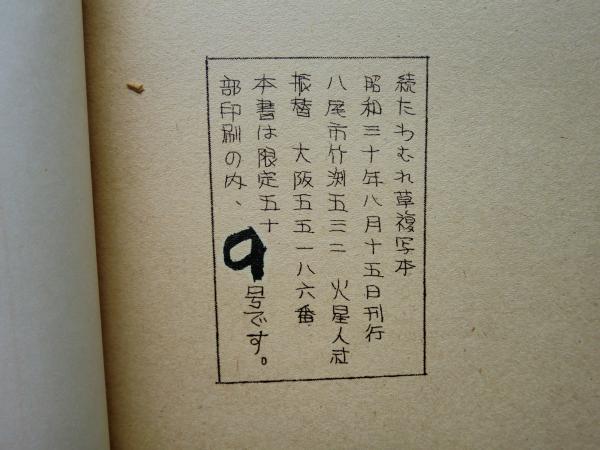 続たわむれ草複写本
昭和三十年八月十五日刊行
八尾市竹渕五三二　火星人社
振替　大阪五五一八六番
本書は限定五十
部印刷の内、
9号です。